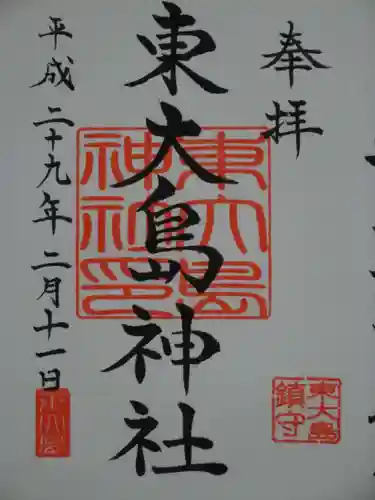 奉拝
東大島神社
平成二十九年二月十一日
東大島
神社印
東大島
鎮守